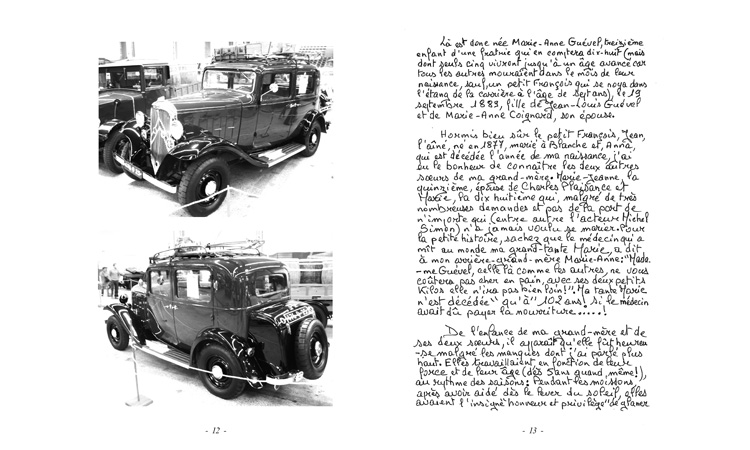 - 12 -
Là est donc née Marie-Anne Guével, treizième
enfant d'une fratrie qui en comptera dix-huit (mais
dont seuls cinq vivront jusqu'à un âge avancé car
tous les autres mouraient dans le mois de leur
naissance, sauf un petit François qui se noya dans
l'étang de la carrière à l'âge de sept ans), le 19
septembre 1883, fille de Jean-Louis Guével
et de Marie-Anne Coignard, son épouse.
Hormis bien sûr le petit François, Jean,
l'aîné, né en 1877, marié à Blanche et, Anna,
qui est décédée l'année de ma naissance, j'ai
eu le bonheur de connaître les deux autres
sœurs de ma grand-mère. Marie-Jeanne, la
quinzième, épouse de Charles Plaisance et
Marie, la dix huitième qui, malgré de très
nombreuses demandes et pas de la part de
n'importe qui (entre autre l'acteur Michel
Simon) n'a jamais voulu se marier. Pour
la petite histoire, sachez que le médecin qui a
mit au monde ma grand-tante Marie, a dit,
à mon arrière-grand-mère Marie-Anne: "Mada-
-me Guével, celle là comme les autres, ne vous
coûtera pas cher en pain, avec ses deux petits
Kilos elle n'ira pas bien loin!". Ma tante Marie
n'est décédée "qu'à" 102 ans! Si le médecin
avait dû payer la nourriture.....!
De l'enfance de ma grand-mère et de
ses deux sœurs, il apparaît qu'elle fût heureu-
-se malgré les manques dont j'ai parlé plus
haut. Elles travaillaient en fonction de leur
force et de leur âge (dès 5 ans quand même!),
au rythme des saisons: Pendant les moissons
après avoir aidé dès le lever du soleil, elles
avaient l'"insigne honneur et privilège" de glaner
- 13 -